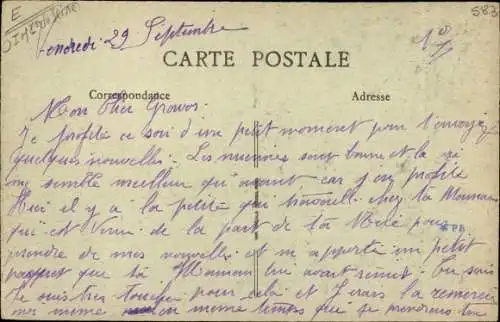 E
583
Vendredi 29 Septembre
CARTE POSTALE
Correspondance
Adresse
Mon Cher
Je profite ce soir d'un petit moment pour t'envoyer
quelques nouvelles. Les miennes sont bonne et la
me semble meilleur qu'avant car j'en profite
Hier il y a la petite qui travaille chez ta Maman
qui est venu de la part de ta pour
prendre de mes nouvelles et m'a apporté un petit
paquet que ta Maman lui avait remit. Tu sais
Je suis très touchée pour cela et J'irais la remercier
moi même en même temps que je prendrais ton